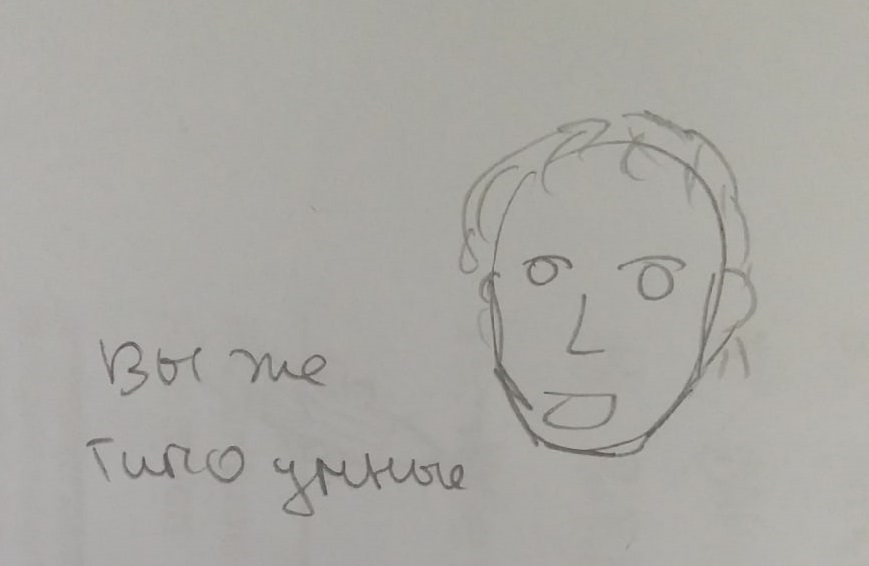 Вы же
типо умные